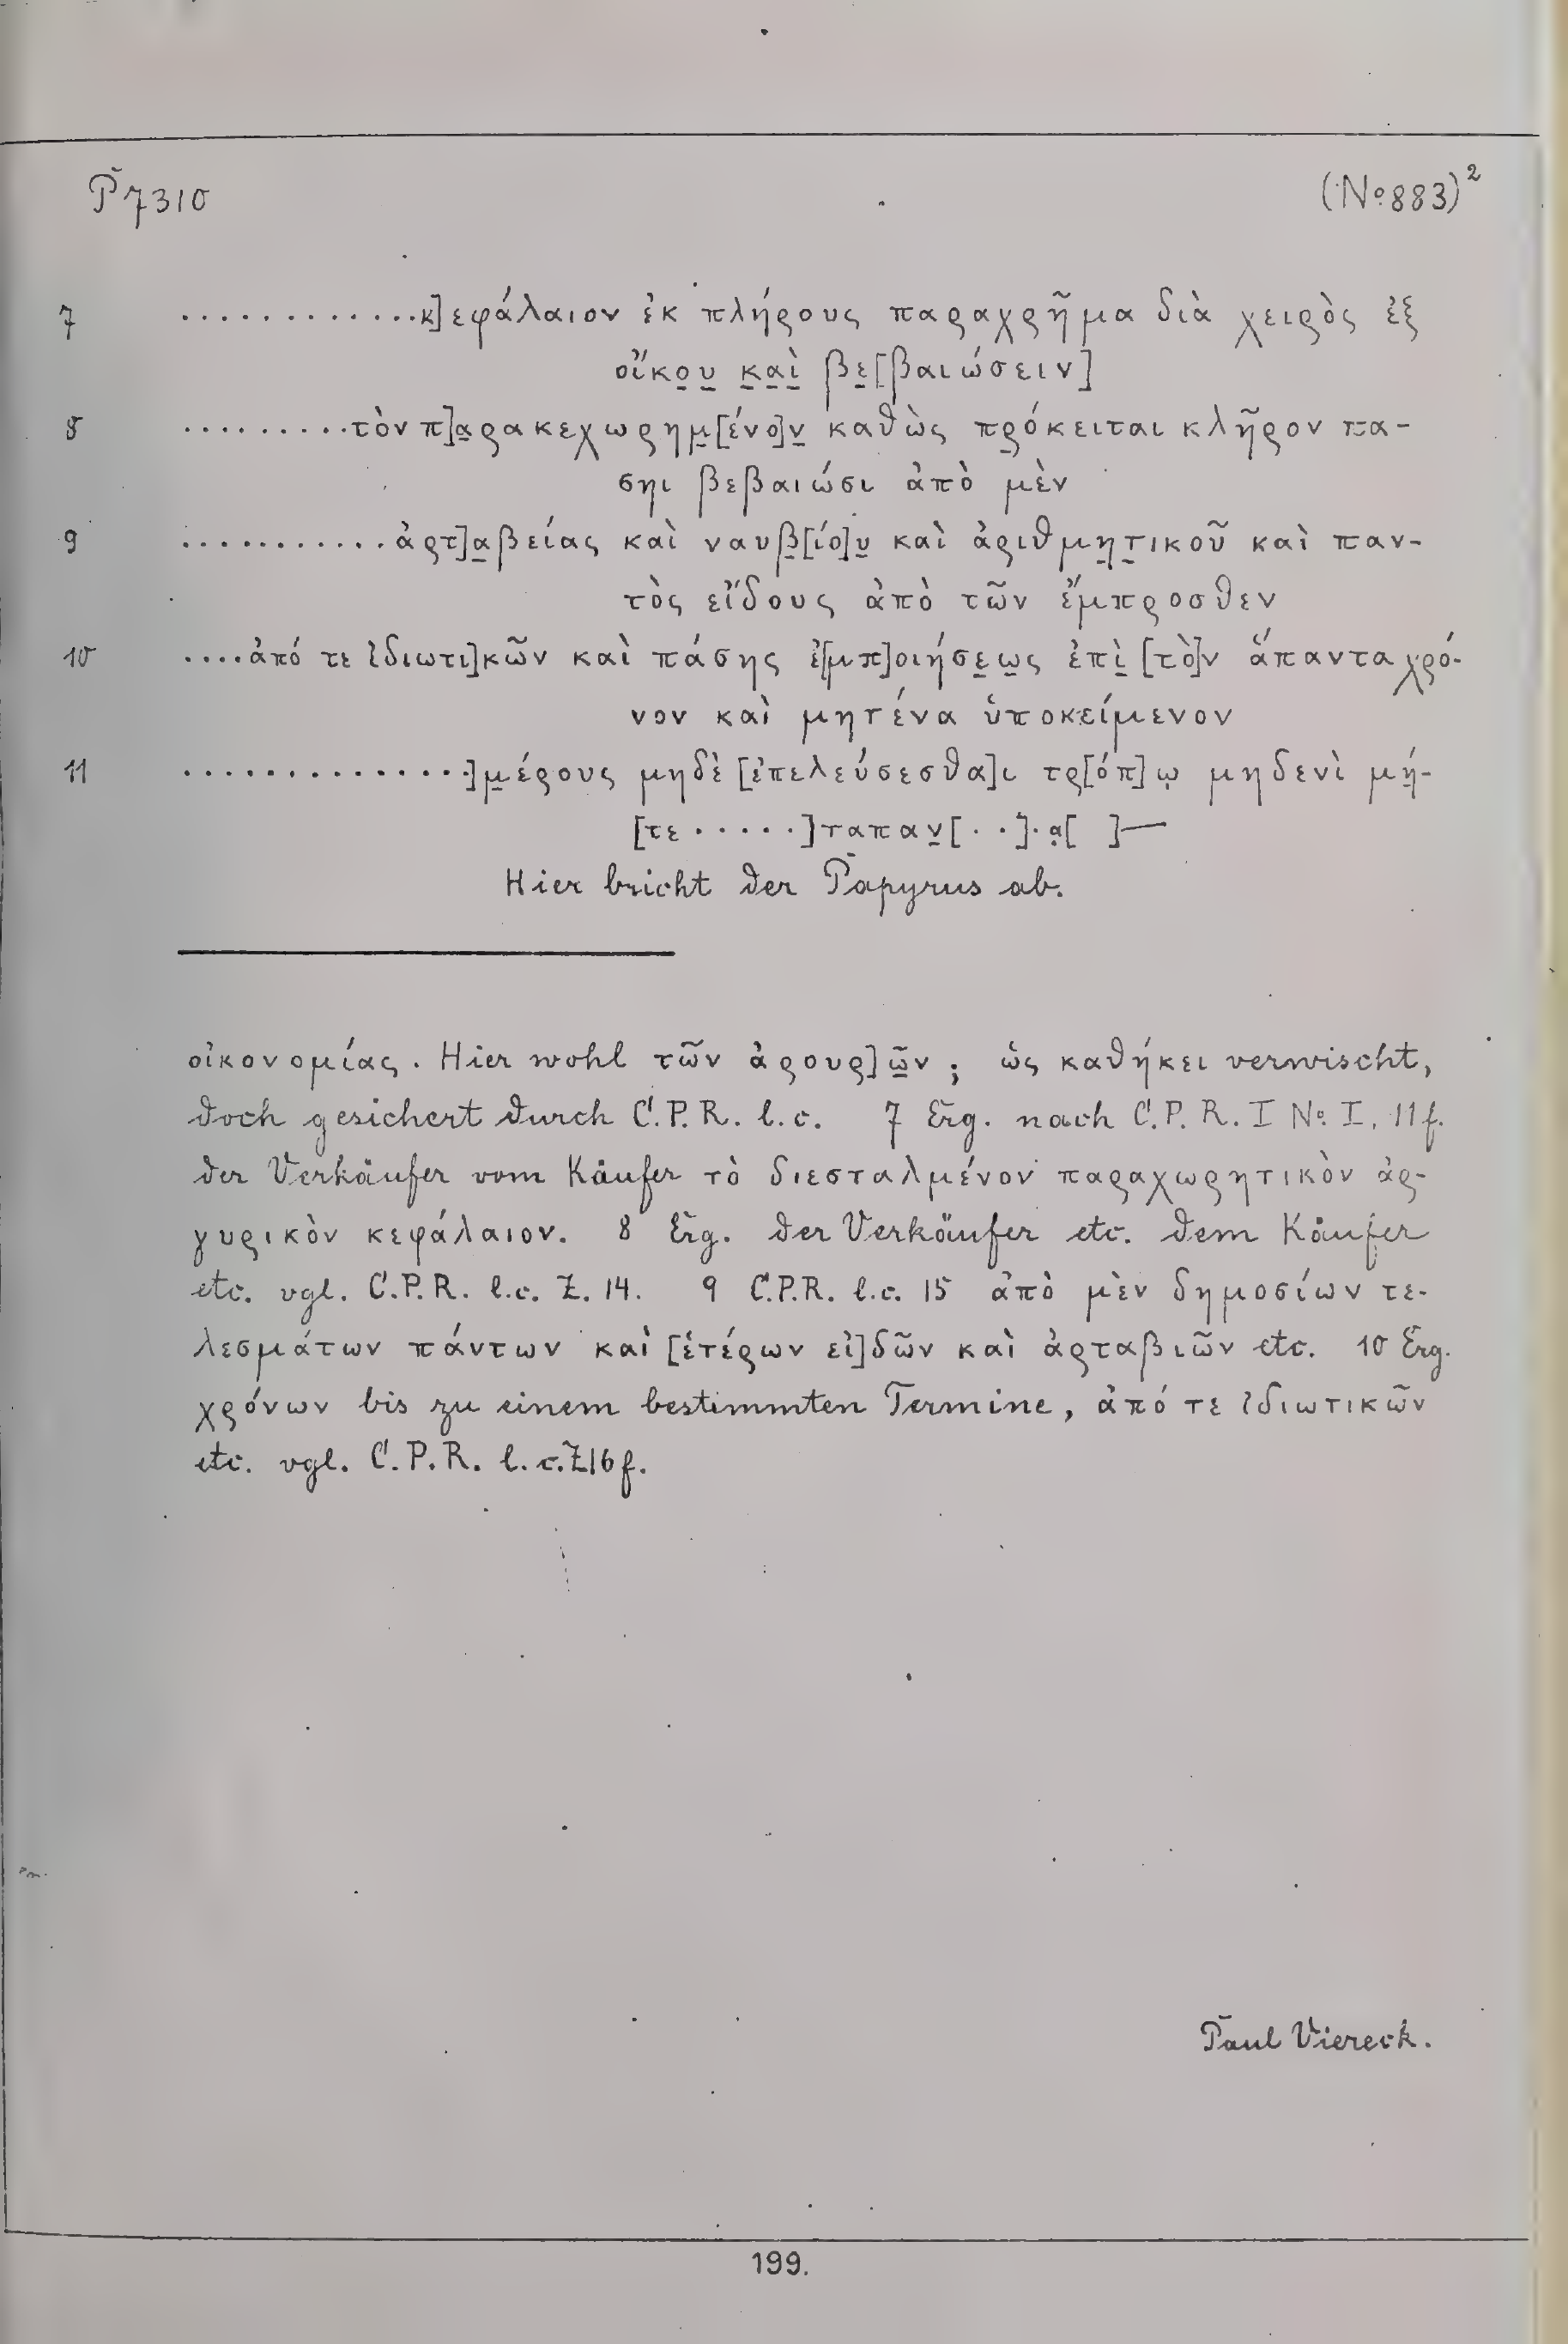 P 7310 (No 883)²
7 .............κ]εφάλαιον ἐκ πλήρους παραχρῆμα διὰ χειρὸς ἐξ
οἴκο̲υ̲ κ̲α̲ὶ̲ βε̲[βαιώσειν]
8 ..........τὸν π]α̲ρακεχωρημ̲[ένο]ν̲ καθὼς πρόκειται κλῆρον πα-
σηι βεβαιώσι ἀπὸ μὲν
9 ...........ἀρτ]α̲βείας καὶ ναυβ̲[ίο]υ̲ καὶ ἀριθμη̲τ̲ικοῦ καὶ παν-
τὸς εἴδους ἀπὸ τῶν ἔμπροσθεν
10 ....ἀπό τε ἰδιωτι]κῶν καὶ πάσης ἐ[μπ]οιήσε̲ω̲ς ἐπὶ̲ [τὸ]ν ἅπαντα χρό-
νον καὶ μητένα ὑποκείμενον
11 ..............]μ̲έρους μηδὲ [ἐπελεύσεσθα]ι τρ[όπ]ῳ μηδενὶ μή̲-
[τε ·····]ταπαν̲[··]·α̣[ ]—
Hier bricht der Papyrus ab.
οἰκονομίας. Hier wohl τῶν ἀρουρ]ῶ̲ν; ὡς καθήκει verwischt,
doch gesichert durch C.P.R. l.c. 7 Erg. nach C.P.R. I No I, 11f.
der Verkäufer vom Käufer τὸ διεσταλμένον παραχωρητικὸν ἀρ-
γυρικὸν κεφάλαιον. 8 Erg. der Verkäufer etc. dem Käufer
etc. vgl. C.P.R. l.c. Z. 14. 9 C.P.R. l.c. 15 ἀπὸ μὲν δημοσίων τε-
λεσμάτων πάντων καὶ [ἑτέρων εἰ]δῶν καὶ ἀρταβιῶν etc. 10 Erg.
χρόνων bis zu einem bestimmten Termine, ἀπό τε ἰδιωτικῶν
etc. vgl. C.P.R. l.c. Z 16 f.
Paul Viereck.
199.